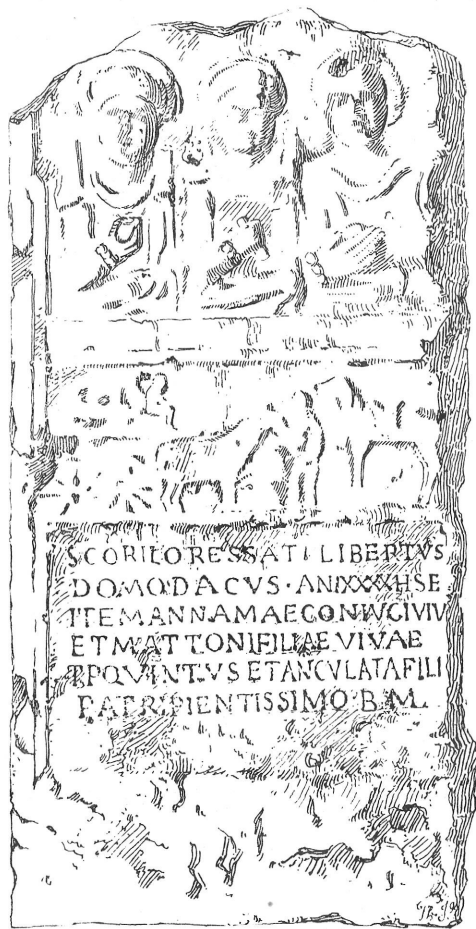 SCORILO RESSATI LIBERTVS
DOMO DACVS · AN XXXX H S E
ITEM ANNAMAE CONIVGI VIV
ET MATTONI FILIAE VIVAE
T P QVINTVS ET ANCVLATA FILI
PATRI PIENTISSIMO B M.